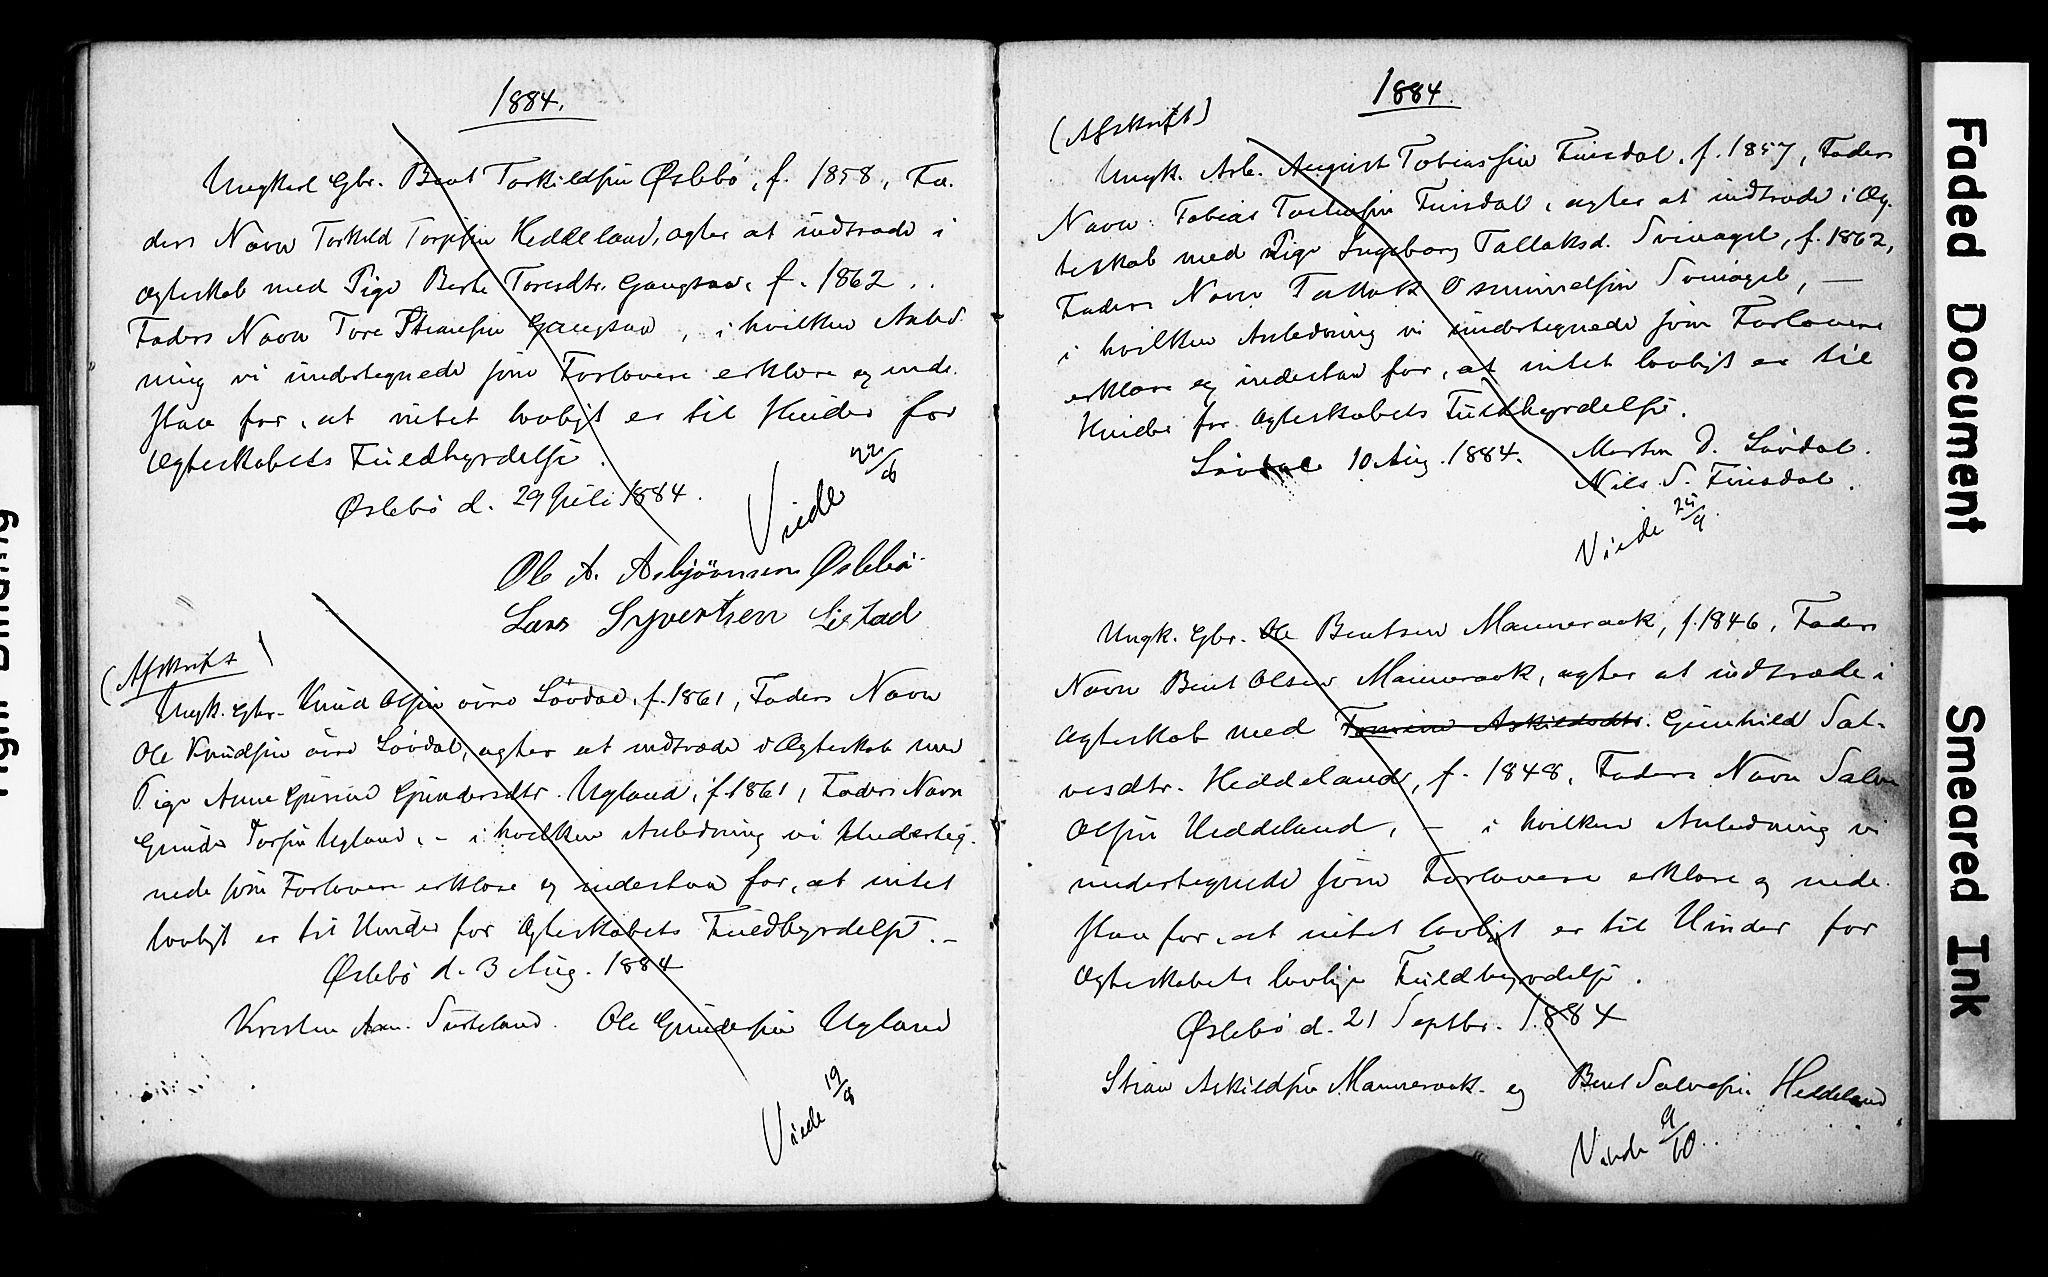 1884.
Ungkarl Gbr. Bent Torkildsen Øslebö, f. 1858, Fa-
ders Navn Torkild Torjesen Heddeland, agter at indtræde i
Ægteskab med Pige Berte Toresdtr. Gangsaa, f. 1862..
Faders Navn Tore Gangsaa, i hvilken Anled-
ning vi undertegnede som Forlovere erklære og inde-
staa for, at intet lovligt er til Hinder for
Ægteskabets Fuldbyrdelse.
Øslebö d. 29 Juli 1884.
Viede
Ole A. Asbjörnsen Øslebö
Lars Syvertsen Listad
(Afskrift)
Ungk. Gbr. Knud Olsen övre Lövdal, f. 1861, Faders Navn
Ole Knudsen övre Lövdal, agter at indtræde i Ægteskab med
Pige Anne Gurine Gundersdtr. Ugland, f. 1861, Faders Navn
Gunder Torsen Ugland, - i hvilken Anledning vi Underteg-
nede som Forlovere erklære og indestaa for, at intet
lovligt er til Hinder for Ægteskabets Fuldbyrdelse. -
Øslebö d. 3 Aug. 1884
Kristen Aan. Ole Gundersen Ugland
Viede 19/8
1884.
(Afskrift)
Ungk. Arb. August Tobiassen Finsdal, f. 1857, Faders
Navn Tobias Finsdal, agter at indtræde i Æg-
teskab med Pige Ingeborg Tallaksd. Svinagel, f. 1862,
Faders Navn Tallak Osmundsen Svinagel, -
i hvilken Anledning vi undertegnede som Forlovere
erklære og indestaa for, at intet lovligt er til
Hinder for Ægteskabets Fuldbyrdelse.
Lövdal 10 Aug. 1884. Martin D. Lövdal.
Nils S. Finsdal.
Viede 25/9
Ungk. Gbr. Ole Bentsen Manneraak, f. 1846, Faders
Navn Bent Olsen Manneraak, agter at indtræde i
Ægteskab med Tomine Askildsdtr. Gunhild Sal-
vesdtr. Heddeland, f. 1848, Faders Navn Salve
Olsen Heddeland, - i hvilken Anledning vi
undertegnede som Forlovere erklære og inde-
staa for, at intet lovligt er til Hinder for
Ægteskabets lovlige Fuldbyrdelse.
Øslebö d. 21 Septbr. 1884
Stian Askildsen Manneraak og Bent Salvesen Heddeland
Viede 9/10
Faded Document
Smeared Ink
Tight Binding